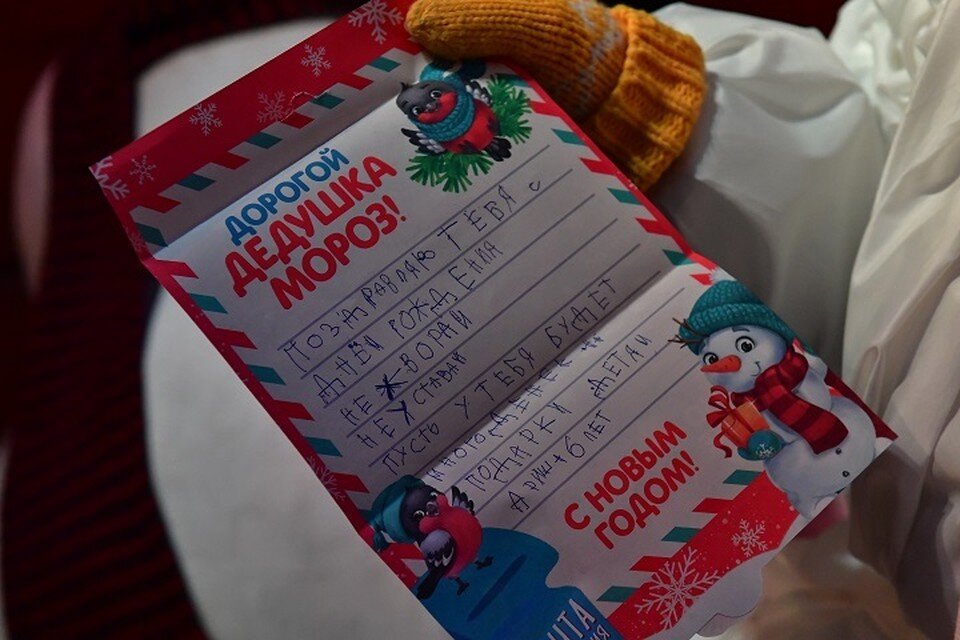 ДОРОГОЙ
ДЕДУШКА
МОРОЗ!
ПОЗДРАВЛЯЮ ТЕБЯ С
ДНЁМ РОЖДЕНИЯ
НЕ ХВОРАЙ
НЕ УСТАВАЙ
ПУСТЬ У ТЕБЯ БУДЕТ
МНОГО ДЕНЕК НА
ПОДАРКИ ДЕТАЙ
АРИША 6 ЛЕТ
С НОВЫМ
ГОДОМ!